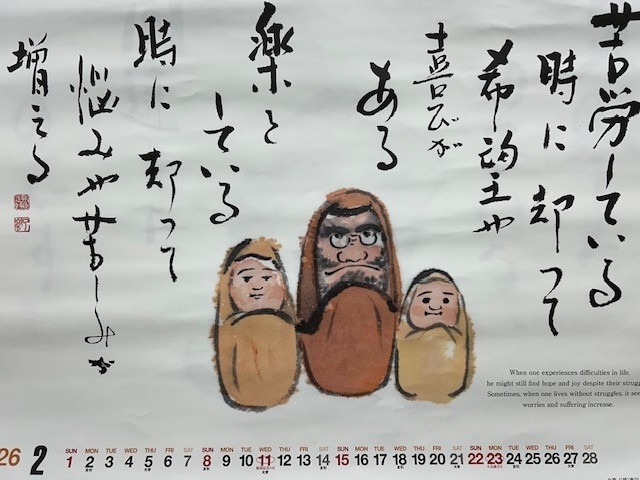 苦労している
時に却って
希望や
喜びが
ある
楽を
している
時に却って
悩みや苦しみが
増える
When one experiences difficulties in life,
he might still find hope and joy despite their
Sometimes, when one lives without struggles, it
worries and suffering increase.
26 2
SUN MON TUE WED THU FRI SAT SUN MON TUE WED THU FRI SAT SUN MON TUE WED THU FRI SAT SUN MON TUE WED THU FRI SAT
1 2 3 4 5 6 7 8 9 10 11 12 13 14 15 16 17 18 19 20 21 22 23 24 25 26 27 28